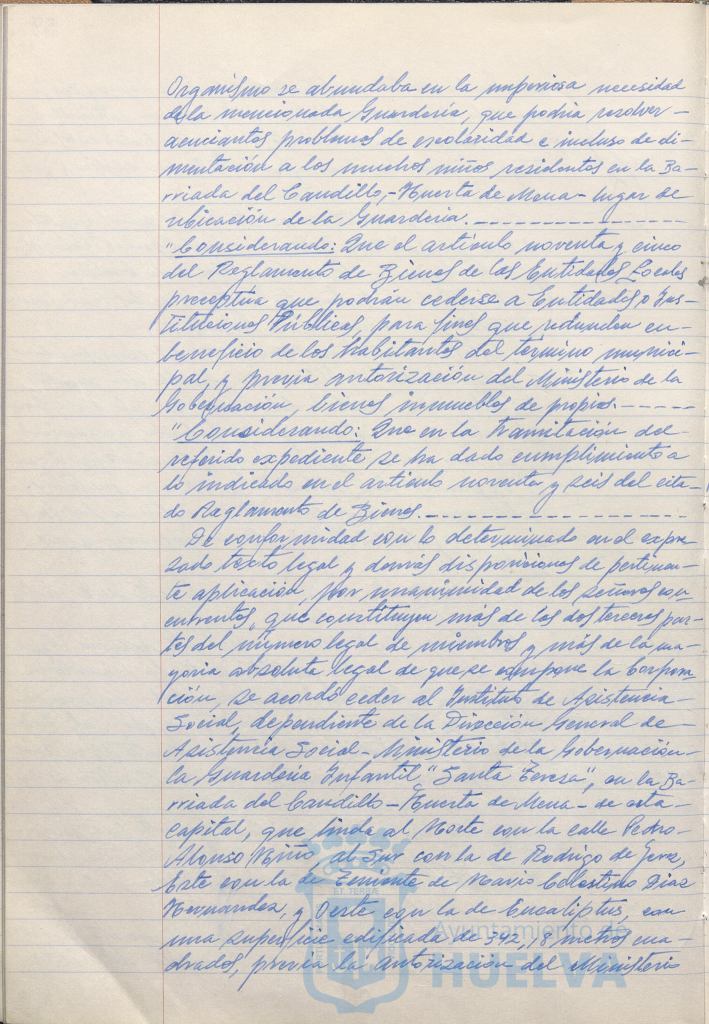 Organismo se abundaba en la imperiosa necesidad
de la mencionada Guardería, que podría resolver
acuciantes problemas de escolaridad e incluso de ali-
mentación a los muchos niños residentes en la Ba-
rriada del Caudillo,-Huerta de Mena- lugar de
ubicación de la Guardería.
"Considerando: Que el artículo noventa y cinco
del Reglamento de Bienes de las Entidades Locales
preceptua que podrán cederse a Entidades o Ins-
tituciones Públicas, para fines que redunden en
beneficio de los habitantes del término munici-
pal, y previa autorización del Ministerio de la
Gobernación, bienes inmuebles de propios.-----
"Considerando: Que en la tramitación del
referido expediente se ha dado cumplimiento a
lo indicado en el artículo noventa y seis del cita-
do Reglamento de Bienes.
De conformidad con lo determinado en el expre
sado texto legal y demás disposiciones de pertinen-
te aplicación, por unanimidad de los señores con
currentes, que constituyen más de las dos terceras par-
tes del número legal de miembros y más de la ma-
yoria absoluta legal de que se compone la Corpora
ción, se acordó ceder al Instituto de Asistencia
Social, dependiente de la Dirección General de
Asistencia Social-Ministerio de la Gobernación-
la Guardería Infantil "Santa Teresa", en la Ba-
rriada del Caudillo-Huerta de Mena- de esta
capital, que linda al Norte con la calle Pedro
Alonso Niño, al Sur con la de Rodrigo de Jerez,
Este con la de Teniente de Navio Celestino Diaz
Hernandez, y Oeste con la de Eucaliptus, con
una superficie edificada de 342,18 metros cua-
drados, previa la autorización del Ministerio
Ayuntamiento de
HUELVA